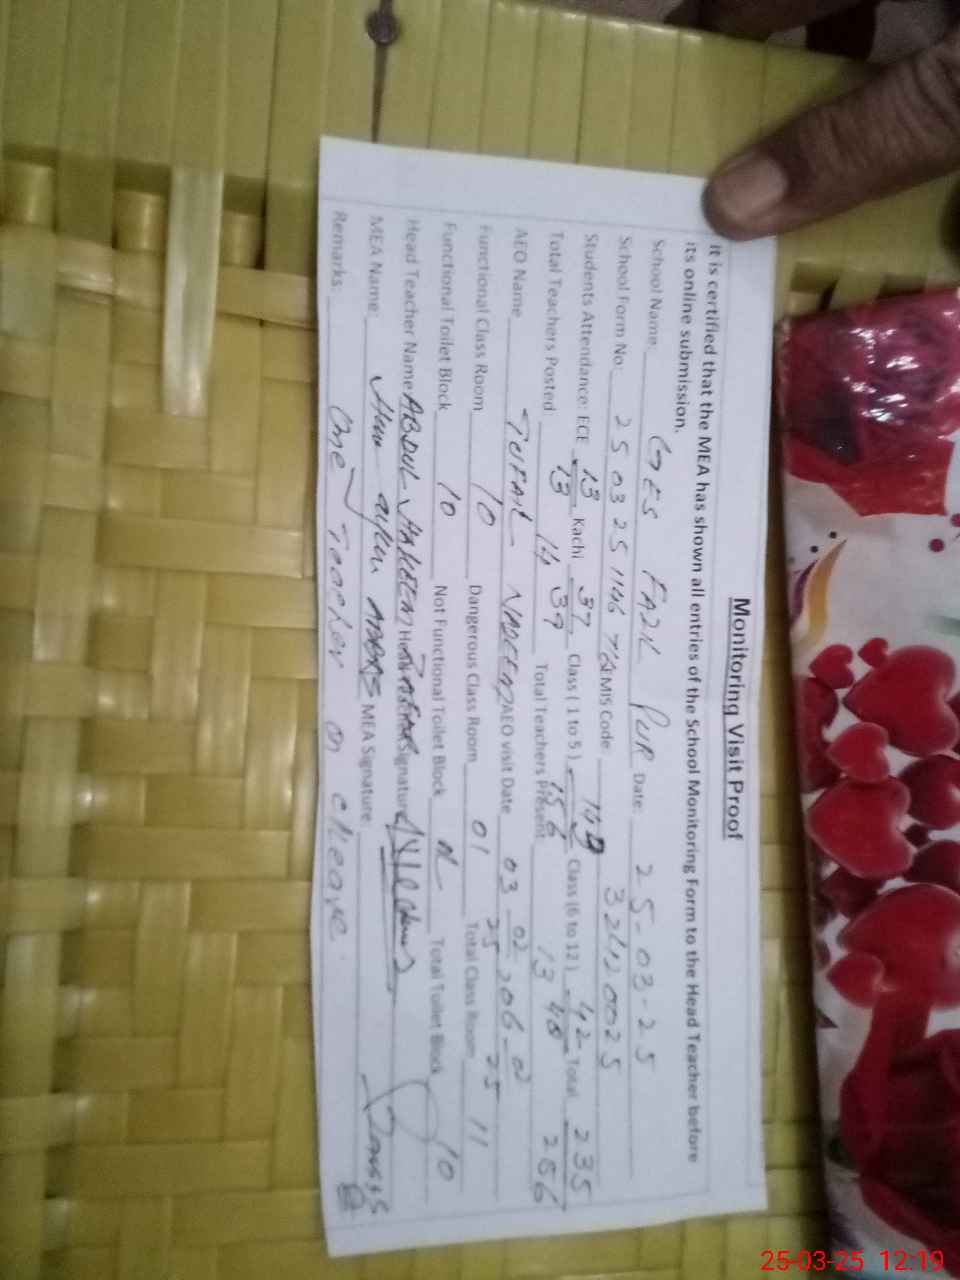 Monitoring Visit Proof
It is certified that the MEA has shown all entries of the School Monitoring Form to the Head Teacher before
its online submission.
School Name: GES FAZIL PUR Date: 25-03-25
School Form No: 25 03 25 1146 EMIS Code 32412 0025
Students Attendance: ECE 13/13 Kachi 37/39 Class ( 1 to 5 ) Class (6 to 12) 42/48 Total 235/256
Total Teachers Posted 14 Total Teachers Present 13
AEO Name TUFAIL NADEEM AEO visit Date 03 02/25 06 02/25
Functional Class Room 10 Dangerous Class Room 01 Total Class Room 11
Functional Toilet Block 10 Not Functional Toilet Block Total Toilet Block 10
Head Teacher Name ABDUL HALEEM Signature
MEA Name: ABBAS MEA Signature:
Remarks: One Teacher on c leave.
25-03-25 12:19